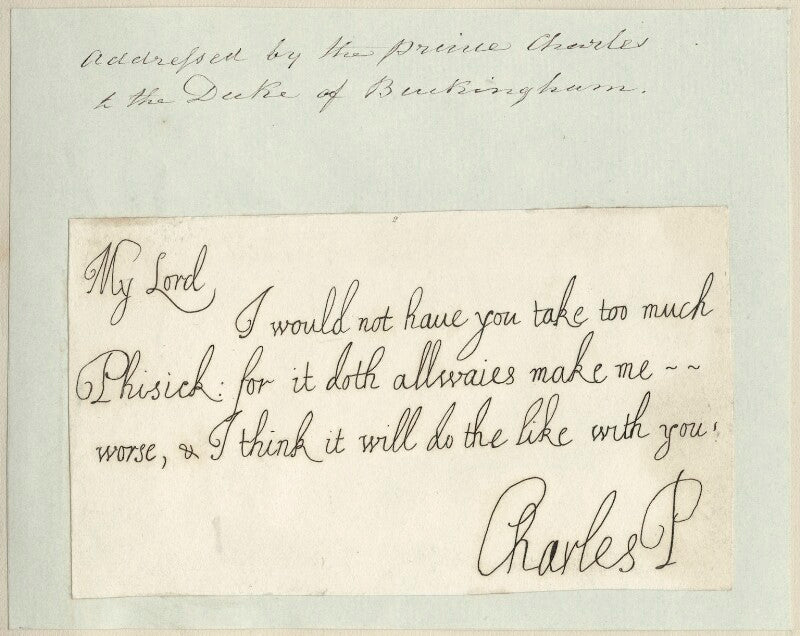 Addressed by the Prince Charles
to the Duke of Buckingham.
My Lord
I would not haue you take too much
Phisick: for it doth allwaies make me ~ ~
worse, & I think it will do the like with you.
Charles P